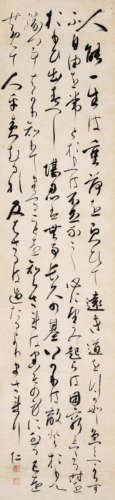 人能一生は重荷を負ひて遠き道を行が如し急べからず
不自由を常とおもへば不足なし心に望み起らば困窮したる時を
おもひ出すべし堪忍は無事長久の基いかりは敵とおもへ
勝事ばかり知りてまくる事を知らざれば害其身に至るおのれを
責て人乎責むるな及ばざるは過たるよりまされり 仁